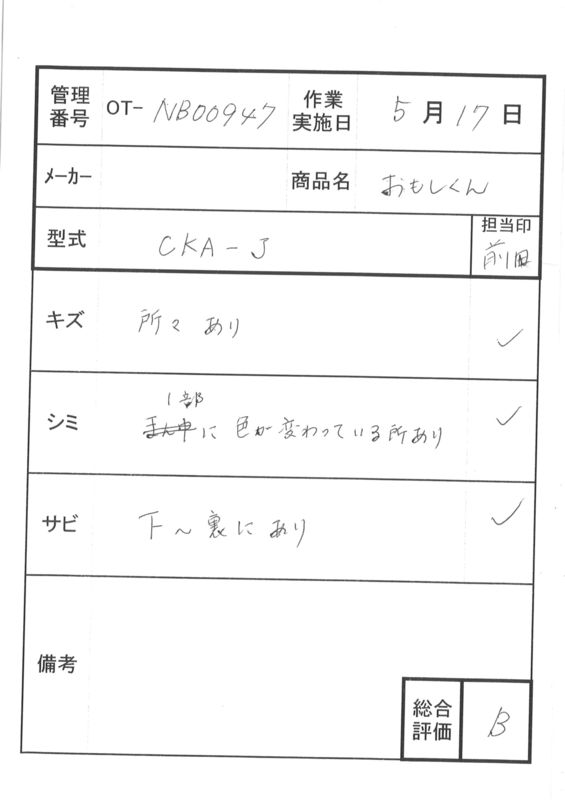 管理番号 OT- NB00947 作業実施日 5月17日
メーカー 商品名 おもしくん
型式 CKA-J 担当印 前田
キズ 所々あり
1部
シミ まん中に色が変わっている所あり
サビ 下~裏にあり
備考
総合評価 B